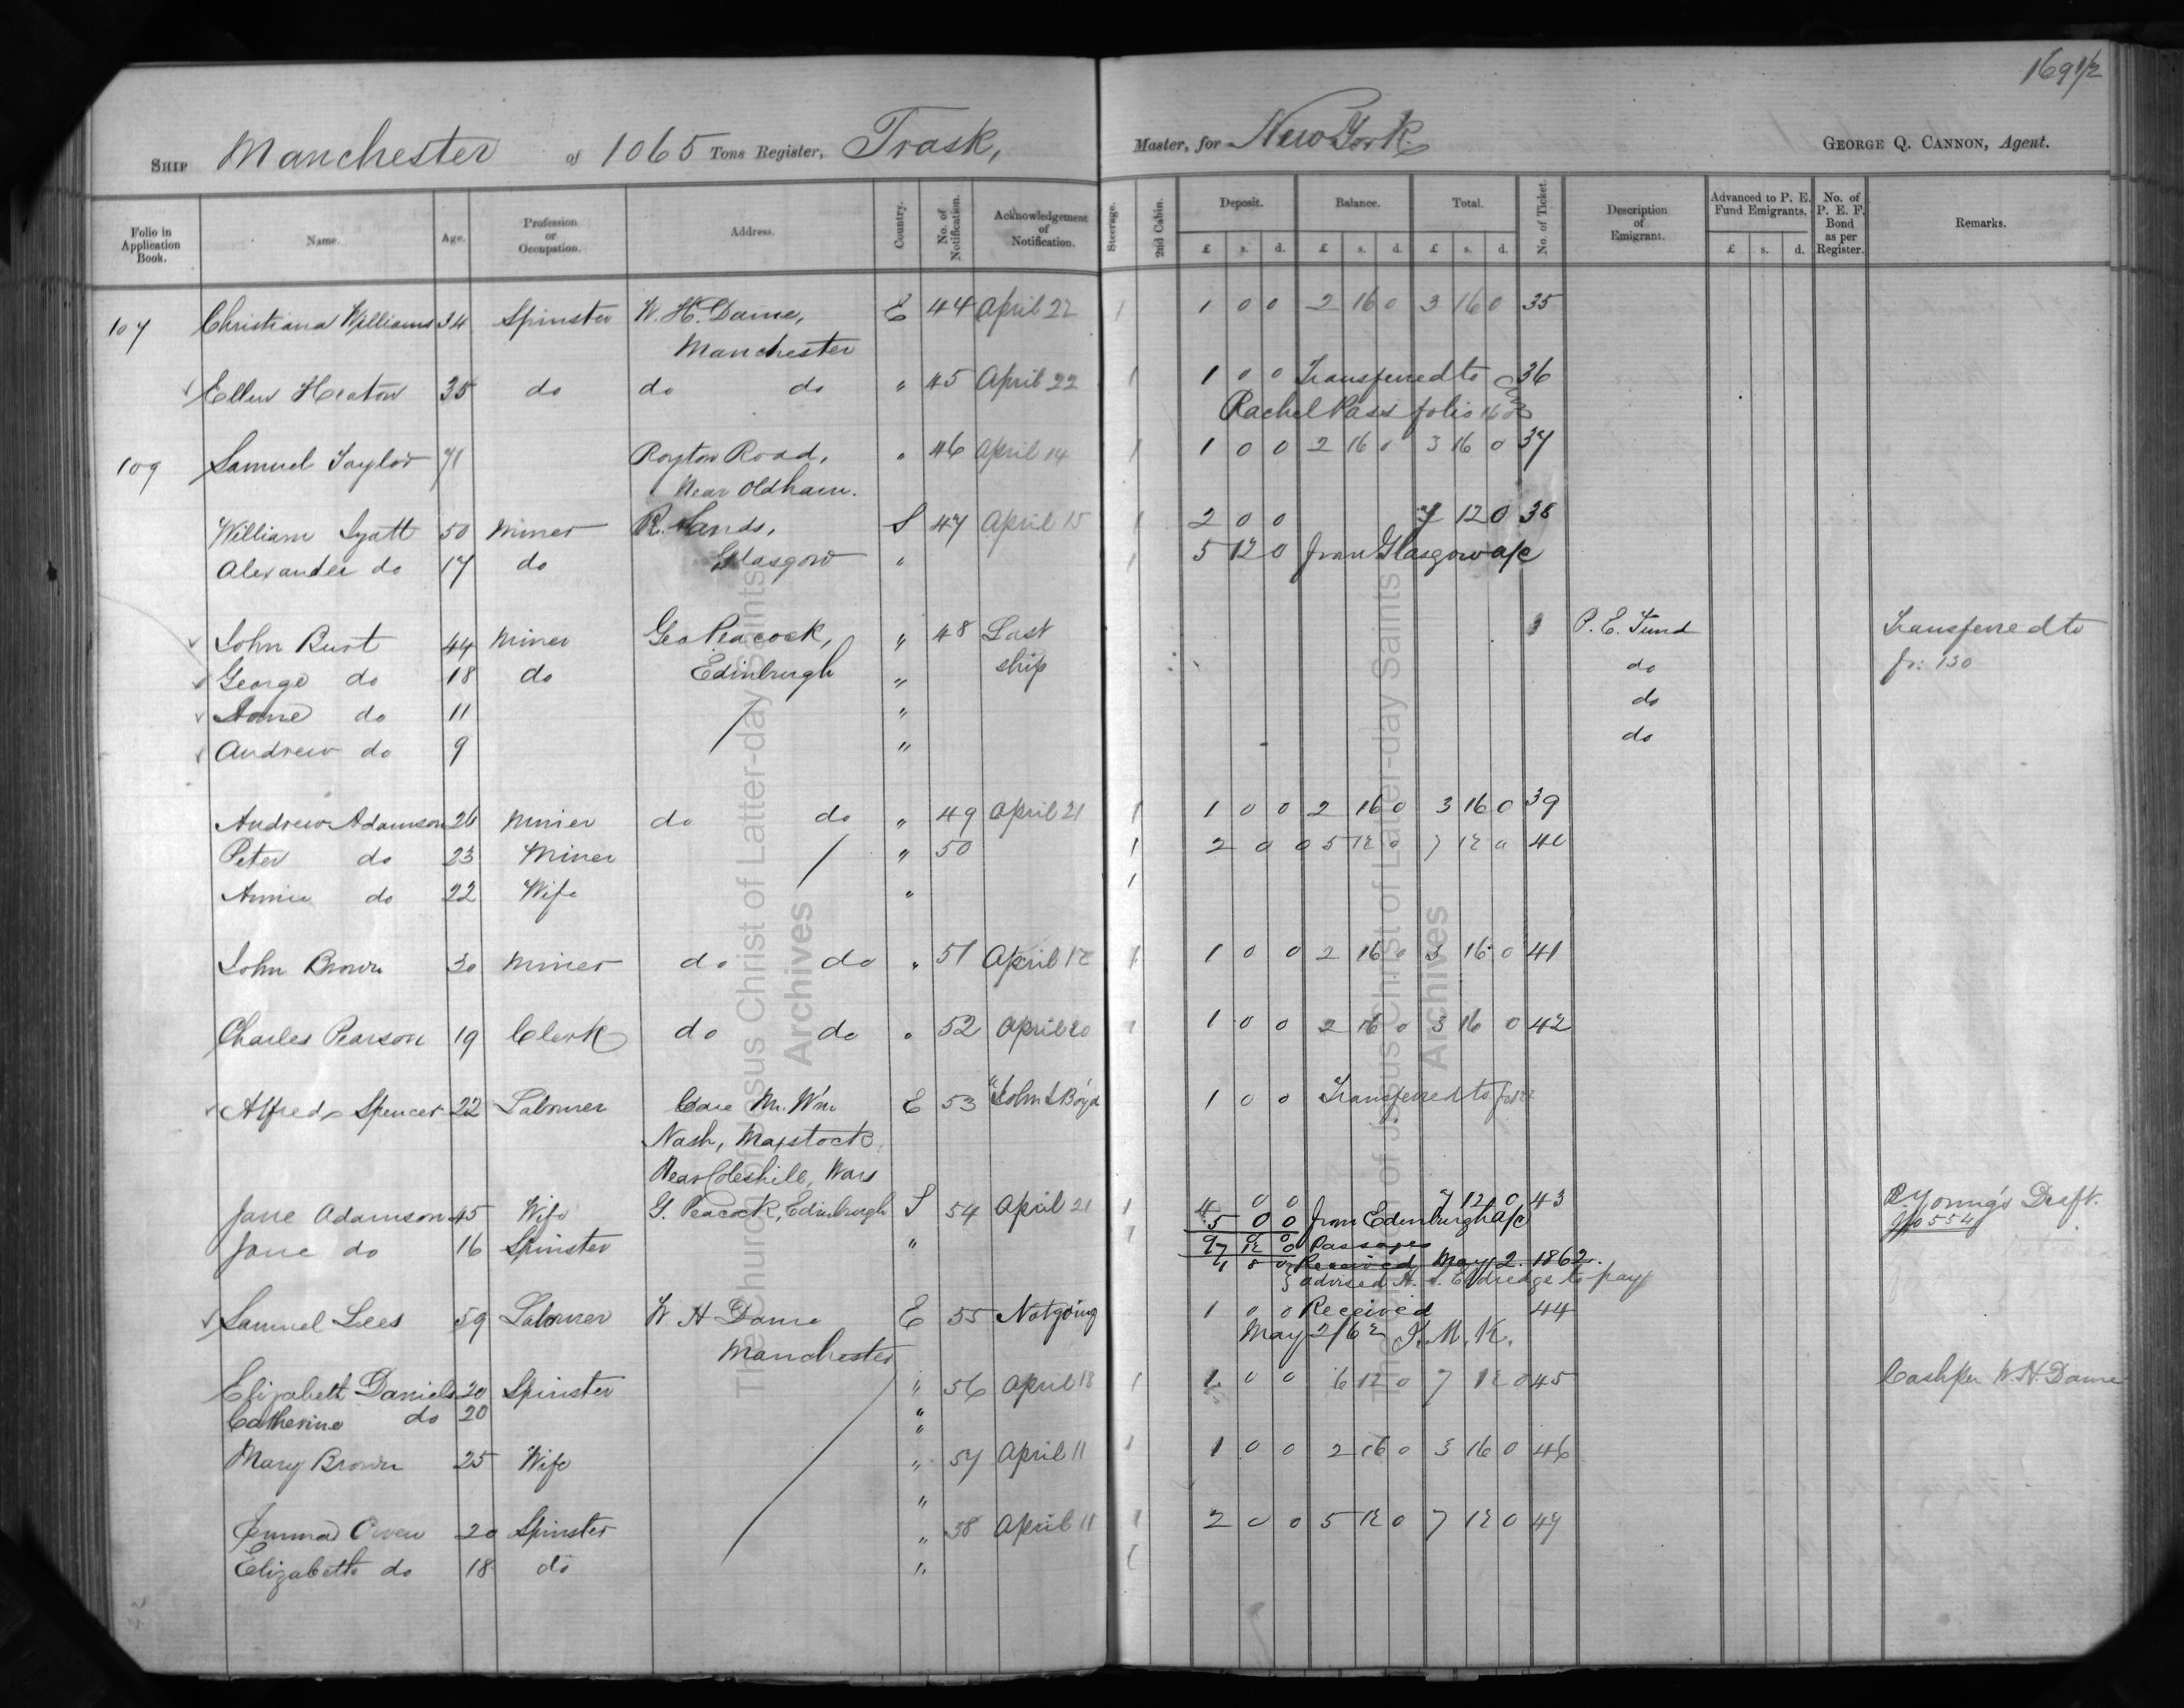 169 1/2
SHIP Manchester of 1065 Tons Register, Trask, Master, for New York. GEORGE Q. CANNON, Agent.
Folio in Application Book. Name. Age. Profession or Occupation. Address. Country. No. of Notification. Acknowledgement of Notification. Steerage. 2nd Cabin. Deposit. Balance. Total. No. of Ticket. Description of Emigrant. Advanced to P. E. Fund Emigrants. No. of P. E. F. Bond as per Register. Remarks.
£ s. d. £ s. d. £ s. d. £ s. d.
107 Christiana Williams 34 Spinster W. H. Dame, E 44 April 22 1 1 0 0 2 16 0 3 16 0 35
Manchester
Ellen Heaton 35 do do do " 45 April 22 1 1 0 0 Transferred to 36
Rachel Pass folio
109 Samuel Taylor 71 Royton Road, " 46 April 14 1 1 0 0 2 16 0 3 16 0 37
Near Oldham.
William Lyatt 50 Miner R. Sands, S 47 April 15 1 2 0 0 7 12 0 38
Alexander do 17 do Glasgow " 1 5 12 0 from Glasgow a/c
John Burt 44 Miner Geo Peacock, " 48 Last P. E. Fund Transferred to
George do 18 do Edinburgh " ship do fo: 130
do 11 " do
Andrew do 9 " do
Andrew Adamson 26 Miner do do " 49 April 21 1 1 0 0 2 16 0 3 16 0 39
Peter do 23 Miner " 50 1 2 0 0 5 12 0 7 12 0 40
Annie do 22 Wife " 1
John Brown 30 Miner do do " 51 April 12 1 1 0 0 2 16 0 3 16 0 41
Charles Pearson 19 Clerk do do " 52 April 20 1 1 0 0 2 16 0 3 16 0 42
Alfred Spencer 22 Labourer Care Mr. Wm. E 53 "John J Boyd 1 0 0 Transferred to
Nash, Maxstock
Near Coleshill, Wars
Jane Adamson 45 Wife G. Peacock, Edinburgh S 54 April 21 1 4 0 0 7 12 0 43 B. Young's Draft.
5 0 0 from Edenburgh a/c 554
Jane do 16 Spinster " 1 9 0 0
7 12 0 Passages
1 8 0 Received May 2. 1862.
advised H. S. Eldredge to pay
Samuel Lees 59 Labourer W H Dame E 55 Not going 1 0 0 Received 44
Manchester May 2/62
Elizabeth Daniels 20 Spinster " 56 April 18 1 1 0 0 6 12 0 7 12 0 45 Cash per W. H. Dame
Catherine do 20 "
Mary Brown 25 Wife " 57 April 11 1 1 0 0 2 16 0 3 16 0 46
"
Emma Owen 20 Spinster " 58 April 11 1 2 0 0 5 12 0 7 12 0 47
Elizabeth do 18 do " 1
The Church of Jesus Christ of Latter-day Saints
Archives
The Church of Jesus Christ of Latter-day Saints
Archives